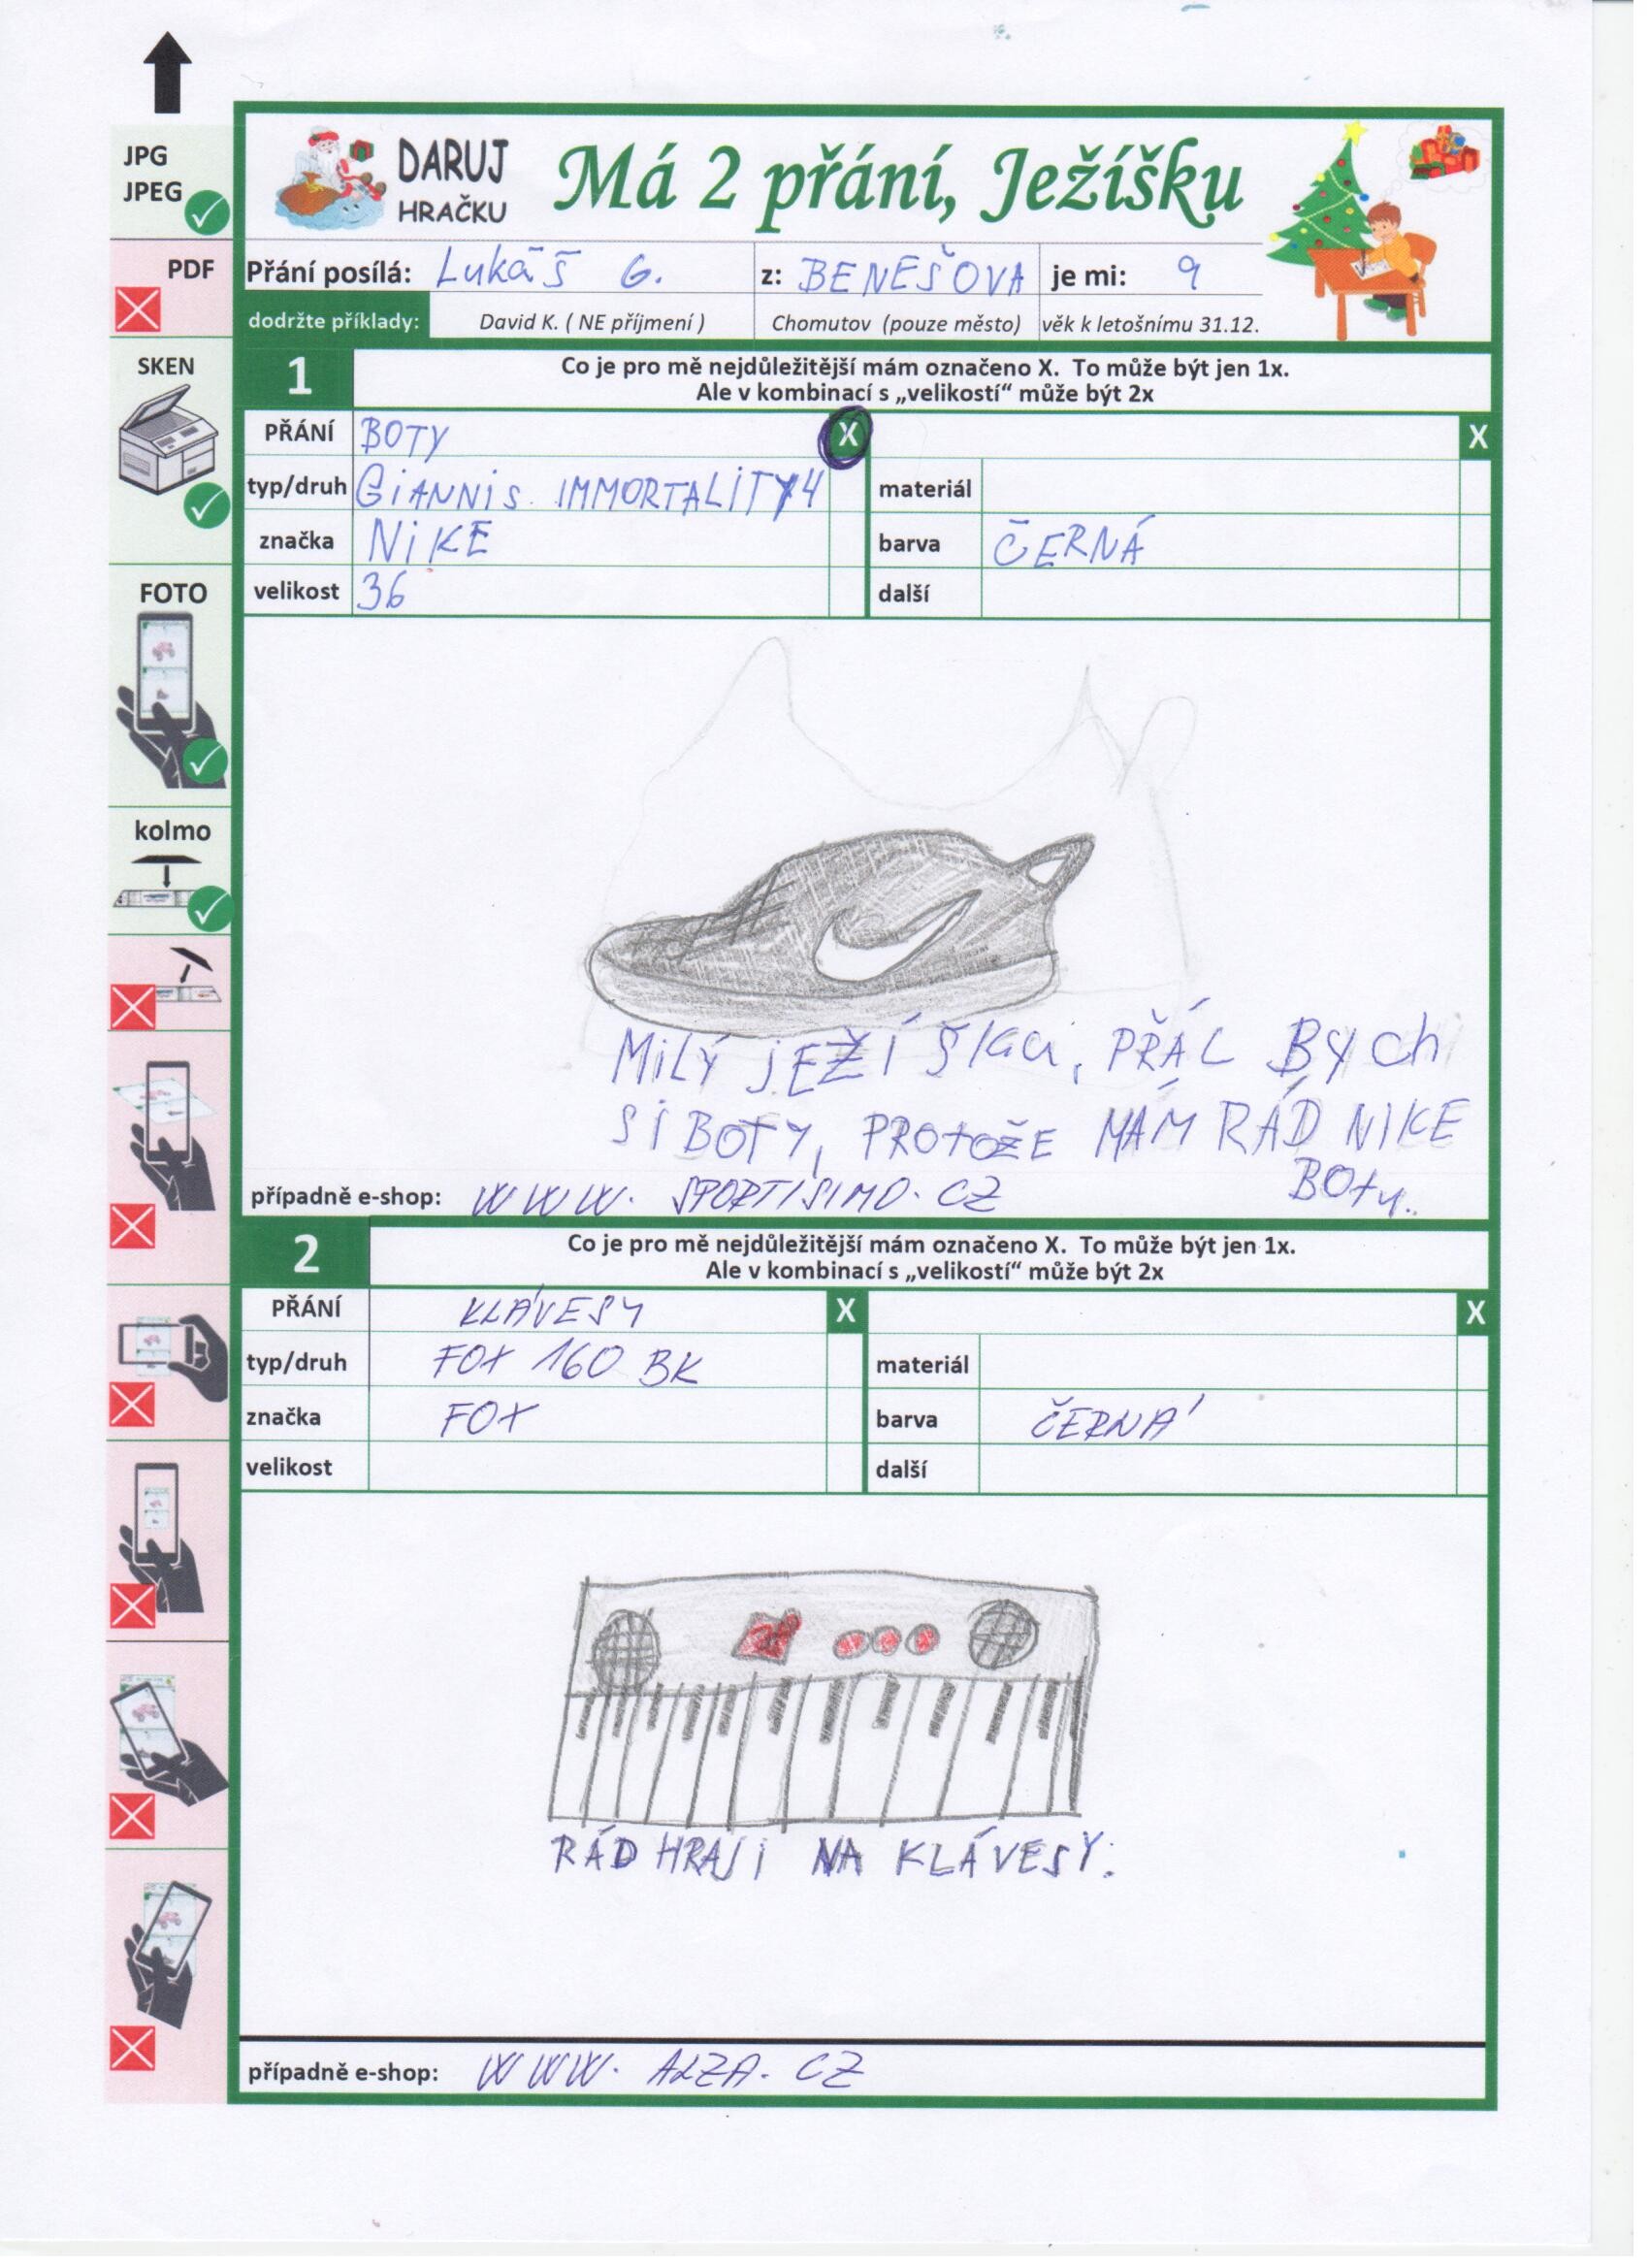 JPG
JPEG
PDF
SKEN
FOTO
kolmo
DARUJ
HRAČKU
Má 2 přání, Ježíšku
Přání posílá: Lukáš G. z: BENEŠOVA je mi: 9
dodržte příklady: David K. ( NE příjmení ) Chomutov (pouze město) věk k letošnímu 31.12.
1 Co je pro mě nejdůležitější mám označeno X. To může být jen 1x.
Ale v kombinací s „velikostí“ může být 2x
PŘÁNÍ BOTY X X
typ/druh GIANNIS IMMORTALITY 4 materiál
značka NIKE barva ČERNÁ
velikost 36 další
MILÝ JEŽÍŠKU, PŘÁL BYCH
SI BOTY, PROTOŽE MÁM RÁD NIKE
BOTY.
případně e-shop: WWW. SPORTISIMO. CZ
2 Co je pro mě nejdůležitější mám označeno X. To může být jen 1x.
Ale v kombinací s „velikostí“ může být 2x
PŘÁNÍ KLÁVESY X X
typ/druh FOX 160 BK materiál
značka FOX barva ČERNÁ
velikost další
RÁD HRAJI NA KLÁVESY.
případně e-shop: WWW. ALZA. CZ